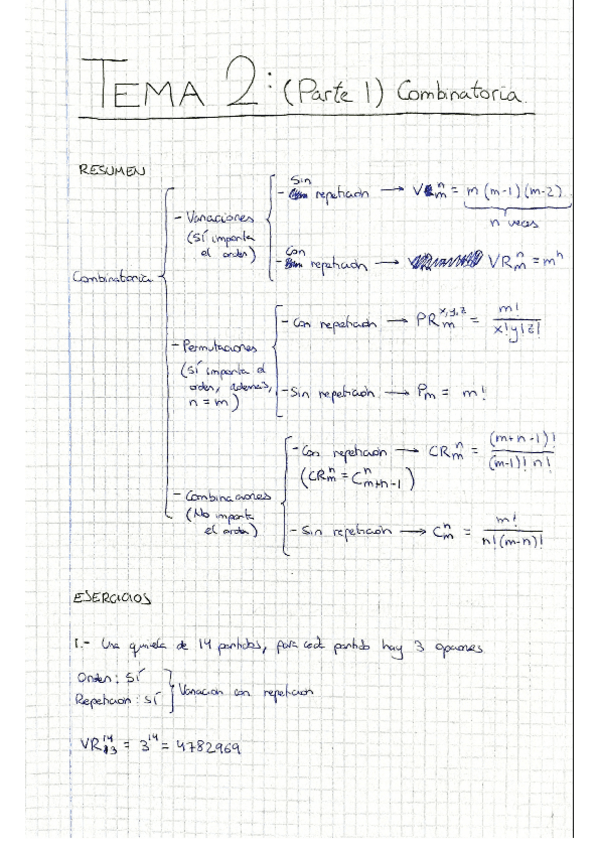 TEMA 2: (Parte 1) Combinatoria.
RESUMEN
Combinatoria
- Variaciones
(Sí importa
el orden)
- Sin repetición → V m^n = m (m-1)(m-2)
n veces
- Con repetición → VR m^n = m^n
- Permutaciones
(Sí importa el
orden, además,
n = m)
- Con repetición → PR m^x,y,z = m! / x!y!z!
- Sin repetición → P m = m!
- Combinaciones
(No importa
el orden)
- Con repetición → CR m^n = (m+n-1)! / (m-1)! n!
(CR m^n = C m+n-1^n)
- Sin repetición → C m^n = m! / n!(m-n)!
EJERCICIOS
1.- Una quiniela de 14 partidos, para cada partido hay 3 opciones
Orden: SÍ
Repetición: SÍ
Variación con repetición
VR 3^14 = 3^14 = 4782969